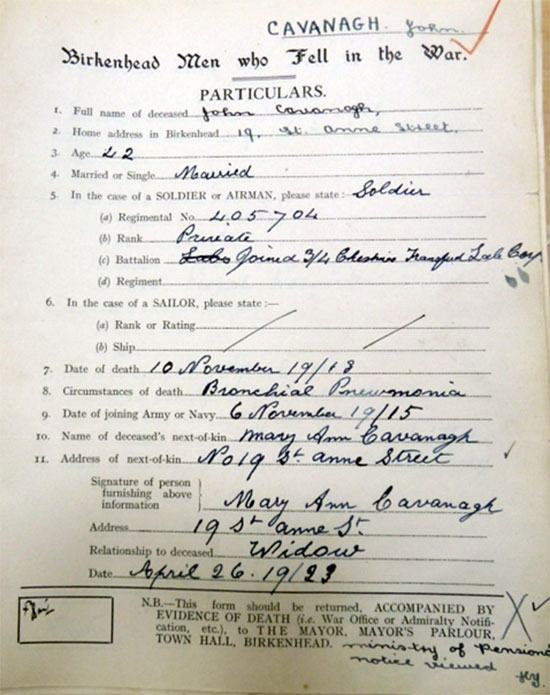 CAVANAGH. John.
Birkenhead Men who Fell in the War.
PARTICULARS.
1. Full name of deceased John Cavanagh,
2. Home address in Birkenhead 19, St. Anne Street.
3. Age 42
4. Married or Single Married
5. In the case of a SOLDIER or AIRMAN, please state:- Soldier
(a) Regimental No. 405704
(b) Rank Private
(c) Battalion Labo Joined 3/4 Cheshire Transfrd Lab Coy
(d) Regiment
6. In the case of a SAILOR, please state :—
(a) Rank or Rating
(b) Ship
7. Date of death 10 November 19/18
8. Circumstances of death Bronchial Pneumonia
9. Date of joining Army or Navy 6 November 19/15
10. Name of deceased's next-of-kin Mary Ann Cavanagh
11. Address of next-of-kin No 19 St. Anne Street
Signature of person
furnishing above
information Mary Ann Cavanagh
Address 19 St Anne St.
Relationship to deceased Widow
Date April 26. 19/23
N.B.—This form should be returned, ACCOMPANIED BY
EVIDENCE OF DEATH (i.e. War Office or Admiralty Notifi-
cation, etc.), to THE MAYOR, MAYOR'S PARLOUR,
TOWN HALL, BIRKENHEAD. Ministry of Pensions
notice viewed